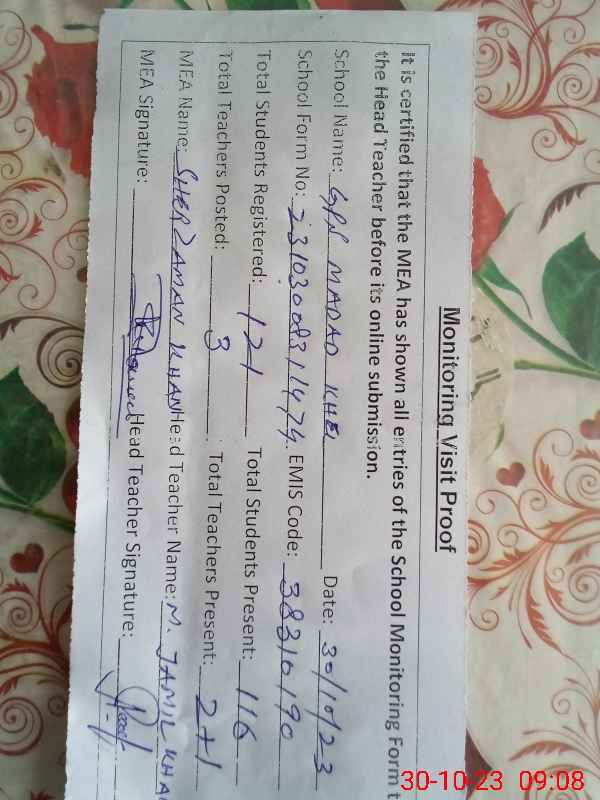 Monitoring Visit Proof
It is certified that the MEA has shown all entries of the School Monitoring Form t
the Head Teacher before its online submission.
School Name: GPS MADAD KHEL Date: 30/10/23
School Form No: EMIS Code: 38310190
Total Students Registered: 121 Total Students Present: 116
Total Teachers Posted: 3 Total Teachers Present: 2+1
MEA Name: SHERZAMAN KHAN Head Teacher Name: M. JAMIL KHA
MEA Signature: Head Teacher Signature:
30-10-23 09:08